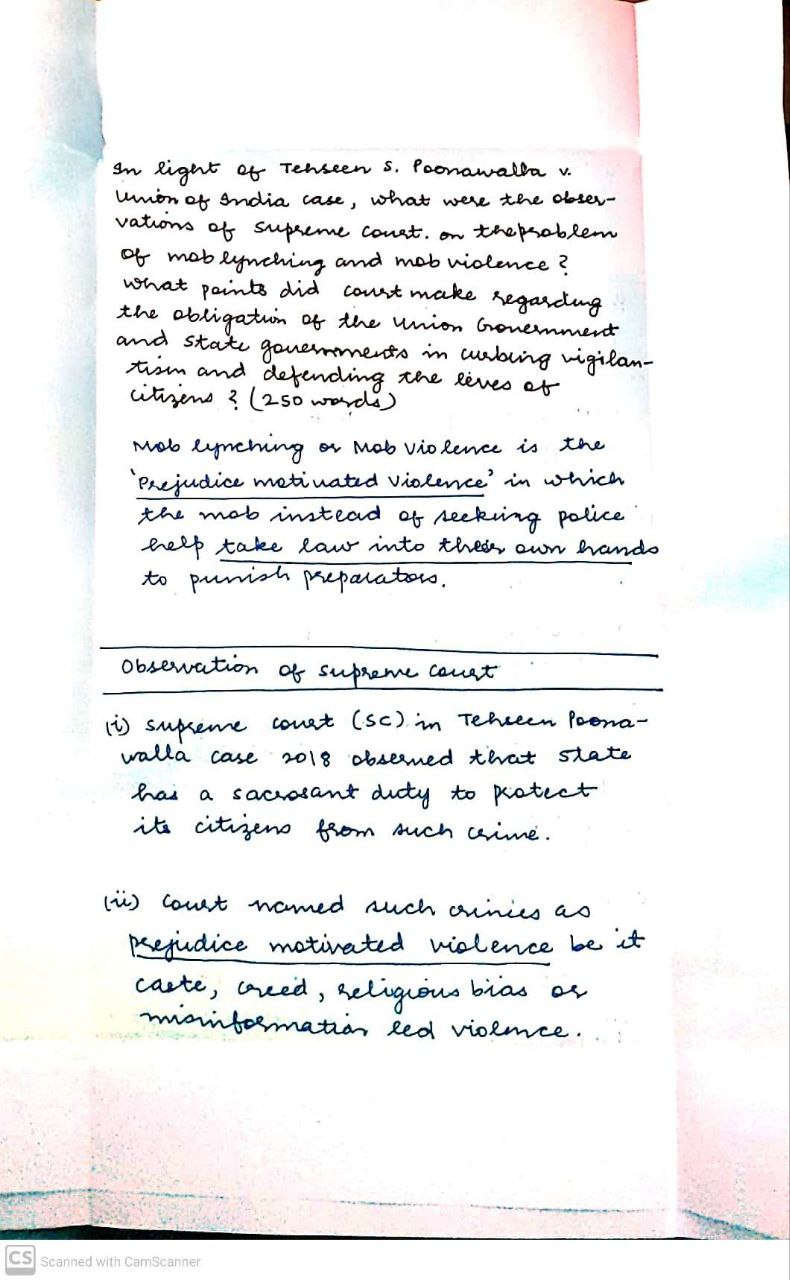 In light of Tehseen S. Poonawalla v.
Union of India case, what were the obser-
vations of supreme court. on the problem
of mob lynching and mob violence ?
what points did court make regarding
the obligation of the Union Government
and state governments in curbing vigilan-
tism and defending the lives of
citizens ? (250 words)
Mob lynching or Mob violence is the
'Prejudice motivated violence' in which
the mob instead of seeking police
help take law into their own hands
to punish preparators.
Observation of supreme court
(i) supreme court (SC) in Tehseen Poona-
walla case 2018 observed that state
has a sacrosant duty to protect
its citizens from such crime.
(ii) Court named such crimes as
prejudice motivated violence be it
caste, creed, religious bias or
misinformation led violence.
CS Scanned with CamScanner